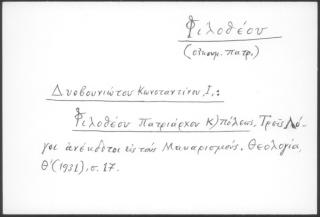 Φιλοθέου
(οἰκουμ. πατρ.)
Δυοβουνιώτου Κωνσταντίνου, Ι.:
Φιλοθέου Πατριάρχου Κ)πόλεως, Τρεῖς Λό-
γοι ἀνέκδοτοι εἰς τοὺς Μακαρισμούς. Θεολογία,
Θ' (1931), σ. 17.